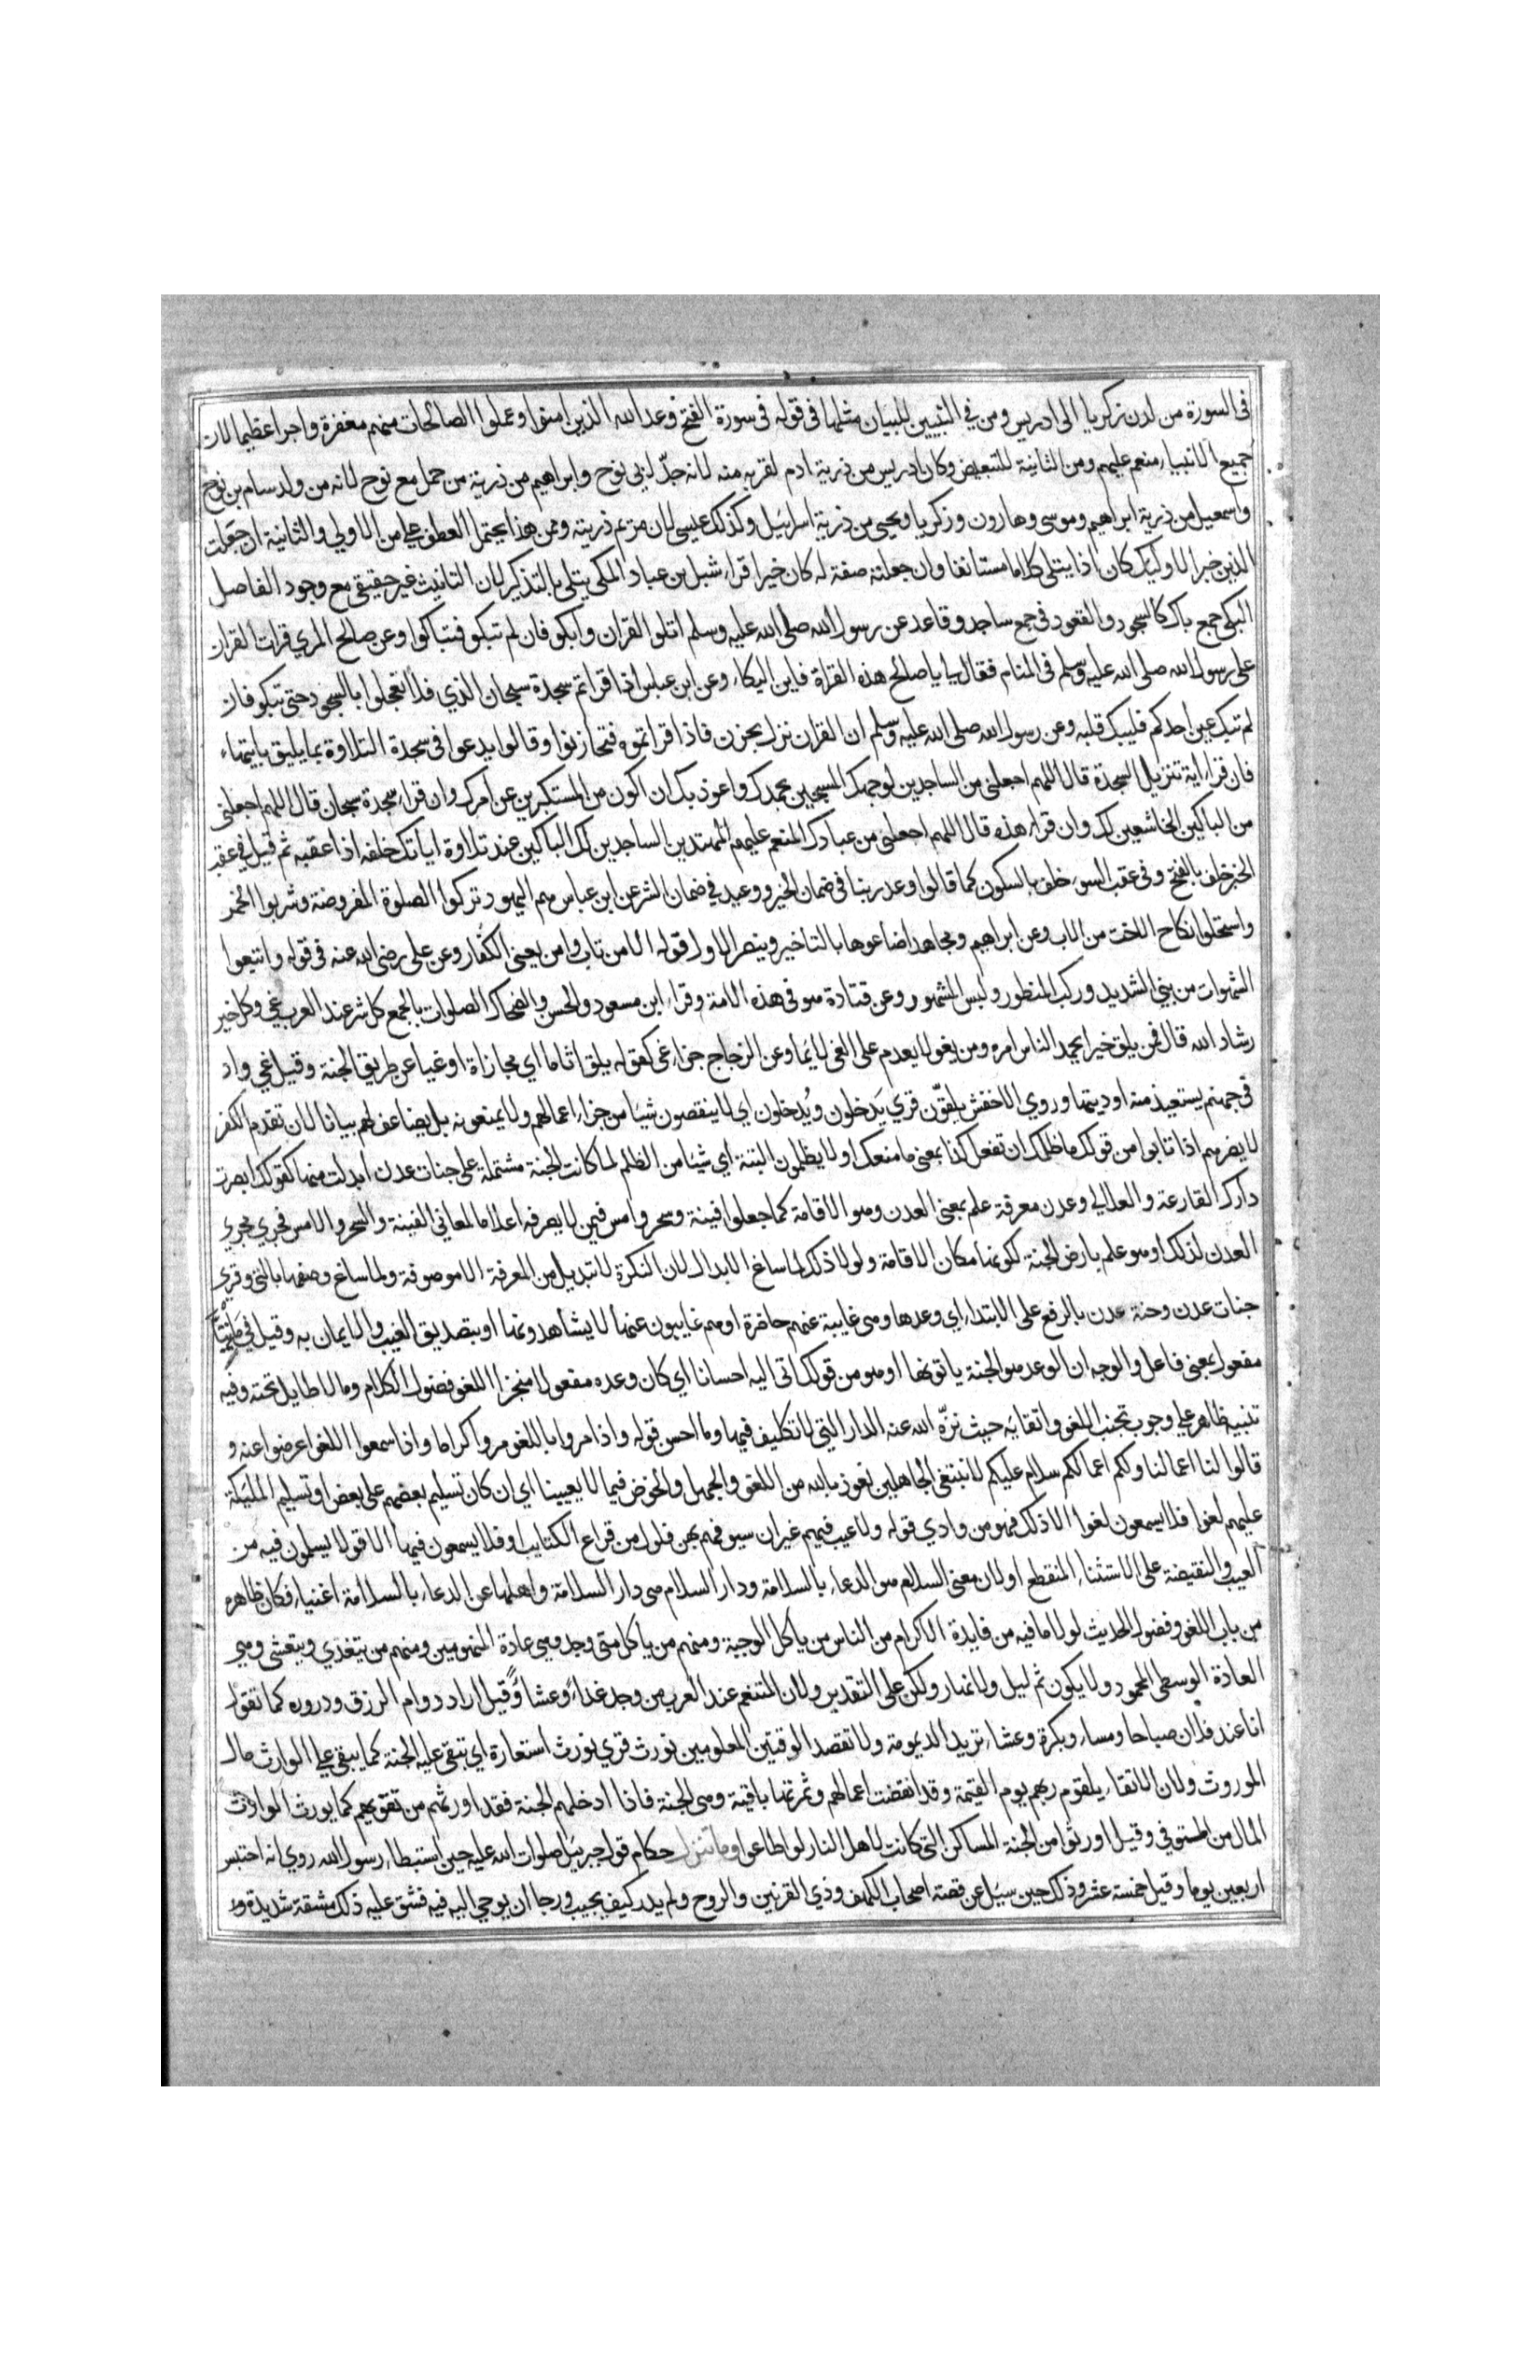 في السورة من لدن زكريا الى ادريس ومن في النبيين للبيان مثلها في قوله في سورة الفتح وعد الله الذين امنوا وعملوا الصالحات منهم مغفرة واجرا عظيما لان
جميع الانبياء منعم عليهم ومن الثانية للتبعيض وكان ادريس من ذرية ادم لقربه منه لانه جدّ لابي نوح وابراهيم من ذرية من حمل مع نوح لانه من ولد سام بن نوح
واسمعيل من ذرية ابراهيم وموسى وهارون وزكريا ويحيى من ذرية اسرائيل وكذلك عيسى لان مريم ذريته وممن هدينا يحتمل العطف على من الاولي والثانية ان جعلت
الذين خبرا لاوليك كان اذا يتلى كلاما مستانفا وان جعلته صفة له كان خبرا قراء شبل بن عباد المكي يتلى بالتذكير لان التانيث غير حقيقي مع وجود الفاصل
البكى جمع باك كالسجود والقعود في جمع ساجد وقاعد عن رسول الله صلى الله عليه وسلم اتلوا القران وابكوا فان لم تبكوا فتباكوا وعن صالح المري قرات القران
على رسول الله صلى الله عليه وسلم في المنام فقال لي يا صالح هذه القراة فاين البكاء وعن ابن عباس اذا قراتم سجدة سبحان الذي فلا تعجلوا بالسجود حتى تبكوا فان
لم تبك عين احدكم فليبك قلبه وعن رسول الله صلى الله عليه وسلم ان القران نزل بحزن فاذا قراتموه فتحازنوا وقالوا يدعوا في سجدة التلاوة بما يليق بايتها
فان قراء اية تنزيل السجدة قال اللهم اجعلني من الساجدين لوجهك المسبحين بحمدك واعوذ بك ان اكون من المستكبرين عن امرك وان قراء سجدة سبحان قال اللهم اجعلني
من الباكين الخاشعين لك وان قراء هذه قال اللهم اجعلني من عبادك المنعم عليهم المهتدين الساجدين لك الباكين عند تلاوة اياتك خلفه اذا عقبه ثم قيل في عقب
الخير خلف بالفتح وفي عقب السوء خلف بالسكون كما قالوا وعد ربنا في ضمان الخير ووعيد في ضمان الشر عن ابن عباس هم اليهود تركوا الصلوة المفروضة وشربوا الخمر
واستحلوا نكاح الاخت من الاب وعن ابراهيم ومجاهد اضاعوها بالتاخير وينصر الاول قوله الا من تاب وامن يعني الكفار وعن على رضى الله عنه في قوله واتبعوا
الشهوات من بني الشديد وركب المنظور ولبس المشهور وعن قتادة هو في هذه الامة وقراء ابن مسعود والحسن والضحاك الصلوات بالجمع كل شر عند العرب غي وكل خير
رشاد الله قال فمن يلق خيرا يحمد الناس امره ومن يغو لا يعدم على الغي لايما وعن الزجاج جزاء غي كقوله يلق اثاما اي مجازاة او غيا عن طريق الجنة وقيل غي واد
في جهنم يستعيذ منه اوديتها وروي الاخفش يلقّون قري يَدخلون ويُدخلون اي لا ينقصون شيا من جزاء اعمالهم ولا يمنعونه بل يضاعف لهم بيانا لان تقدم الكفر
لا يضرهم اذا تابوا من قولك ما ظلمك ان تفعل كذا بمعني ما منعك او لا يظلمون البتة اي شيا من الظلم لما كانت الجنة مشتملة على جنات عدن ابدلت منها كقولك ابصرت
دارك القارعة والعلالي وعدن معرفة علم بمعني العدن وهو الاقامة كما جعلوا فينة وسحر وامس فيمن لا يصرفه اعلاما لمعاني الفينة والسحر والامس فجري مجري
العدن لذلك او هو علم بارض الجنة لكونها مكان الاقامة ولولا ذلك لما ساغ الابدال لان النكرة لا تبدل من المعرفة الا موصوفة ولما ساغ وصفها بالتي وقري
جنات عدن وجنة عدن بالرفع على الابتداء اي وعدها وهي غايبة عنهم حاضرة او هم غايبون عنها لا يشاهدونها او بتصديق الغيب والايمان به وقيل في ماتيا
مفعول بمعني فاعل والوجه ان الوعد هو الجنة ياتونها او هو من قولك اتى اليه احسانا اي كان وعده مفعولا منجزا اللغو فضول الكلام وما لا طايل تحته وفيه
تنبيه ظاهر على وجوب تجنب اللغو واتقايه حيث نزّه الله عنه الدار التي لا تكليف فيها وما احسن قوله واذا مروا باللغو مروا كراما واذا سمعوا اللغو اعرضوا عنه و
قالوا لنا اعمالنا ولكم اعمالكم سلام عليكم لا نبتغى الجاهلين نعوذ بالله من اللغو والجهل والخوض فيما لا يعيينا اي ان كان تسليم بعضهم على بعض او تسليم المليكة
عليهم لغوا فلا يسمعون لغوا الا ذلك فهو من وادي قوله ولا عيب فيهم غير ان سيوفهم بهن فلول من قراع الكتايب او فلا يسمعون فيها الا قولا يسلمون فيه من
العيب والنقيضة على الاستثناء المنقطع او لان معنى السلام هو الدعاء بالسلامة ودار السلام هي دار السلامة واهلها عن الدعاء بالسلامة اغنياء فكان ظاهره
من باب اللغو وفضول الحديث لولا ما فيه من فايدة الاكرام من الناس من ياكل الوجبة ومنهم من ياكل متى وجد وهي عادة المنهومين ومنهم من يتغذي ويتعشى وهي
العادة الوسطى المحمود ولا يكون ثم ليل ولا نهار ولكن على التقدير ولان المتنعم عند العرب من وجد غداء وعشاءً وقيل اراد دوام الرزق ودروره كما تقول
انا عند فلان صباحا ومساء وبكرة وعشاء تريد الديمومة ولا تقصد الوقتين المعلومين نورث قري نورث استعارة اي تبقى عليه الجنة كما يبقى على الوارث مال
الموروث ولان الاتقاء يلقون ربهم يوم القيمة وقد انقضت اعمالهم وثمرتها باقية وهي الجنة فاذا ادخلهم الجنة فقد اورثهم من تقويهم كما يورث الوارث
المال من المتوفي وقيل اورثوا من الجنة المساكن التي كانت لاهل النار لو اطاعوا وما تنزل حكام قول جبريل صلوات الله عليه حين استبطاء رسول الله روي انه احتبس
اربعين يوما وقيل خمسة عشر وذلك حين سيل عن قصة اصحاب الكهف وذي القرنين والروح ولم يدر كيف يجيب ورجا ان يوحي اليه فيه فشق عليه ذلك مشقة شديدة